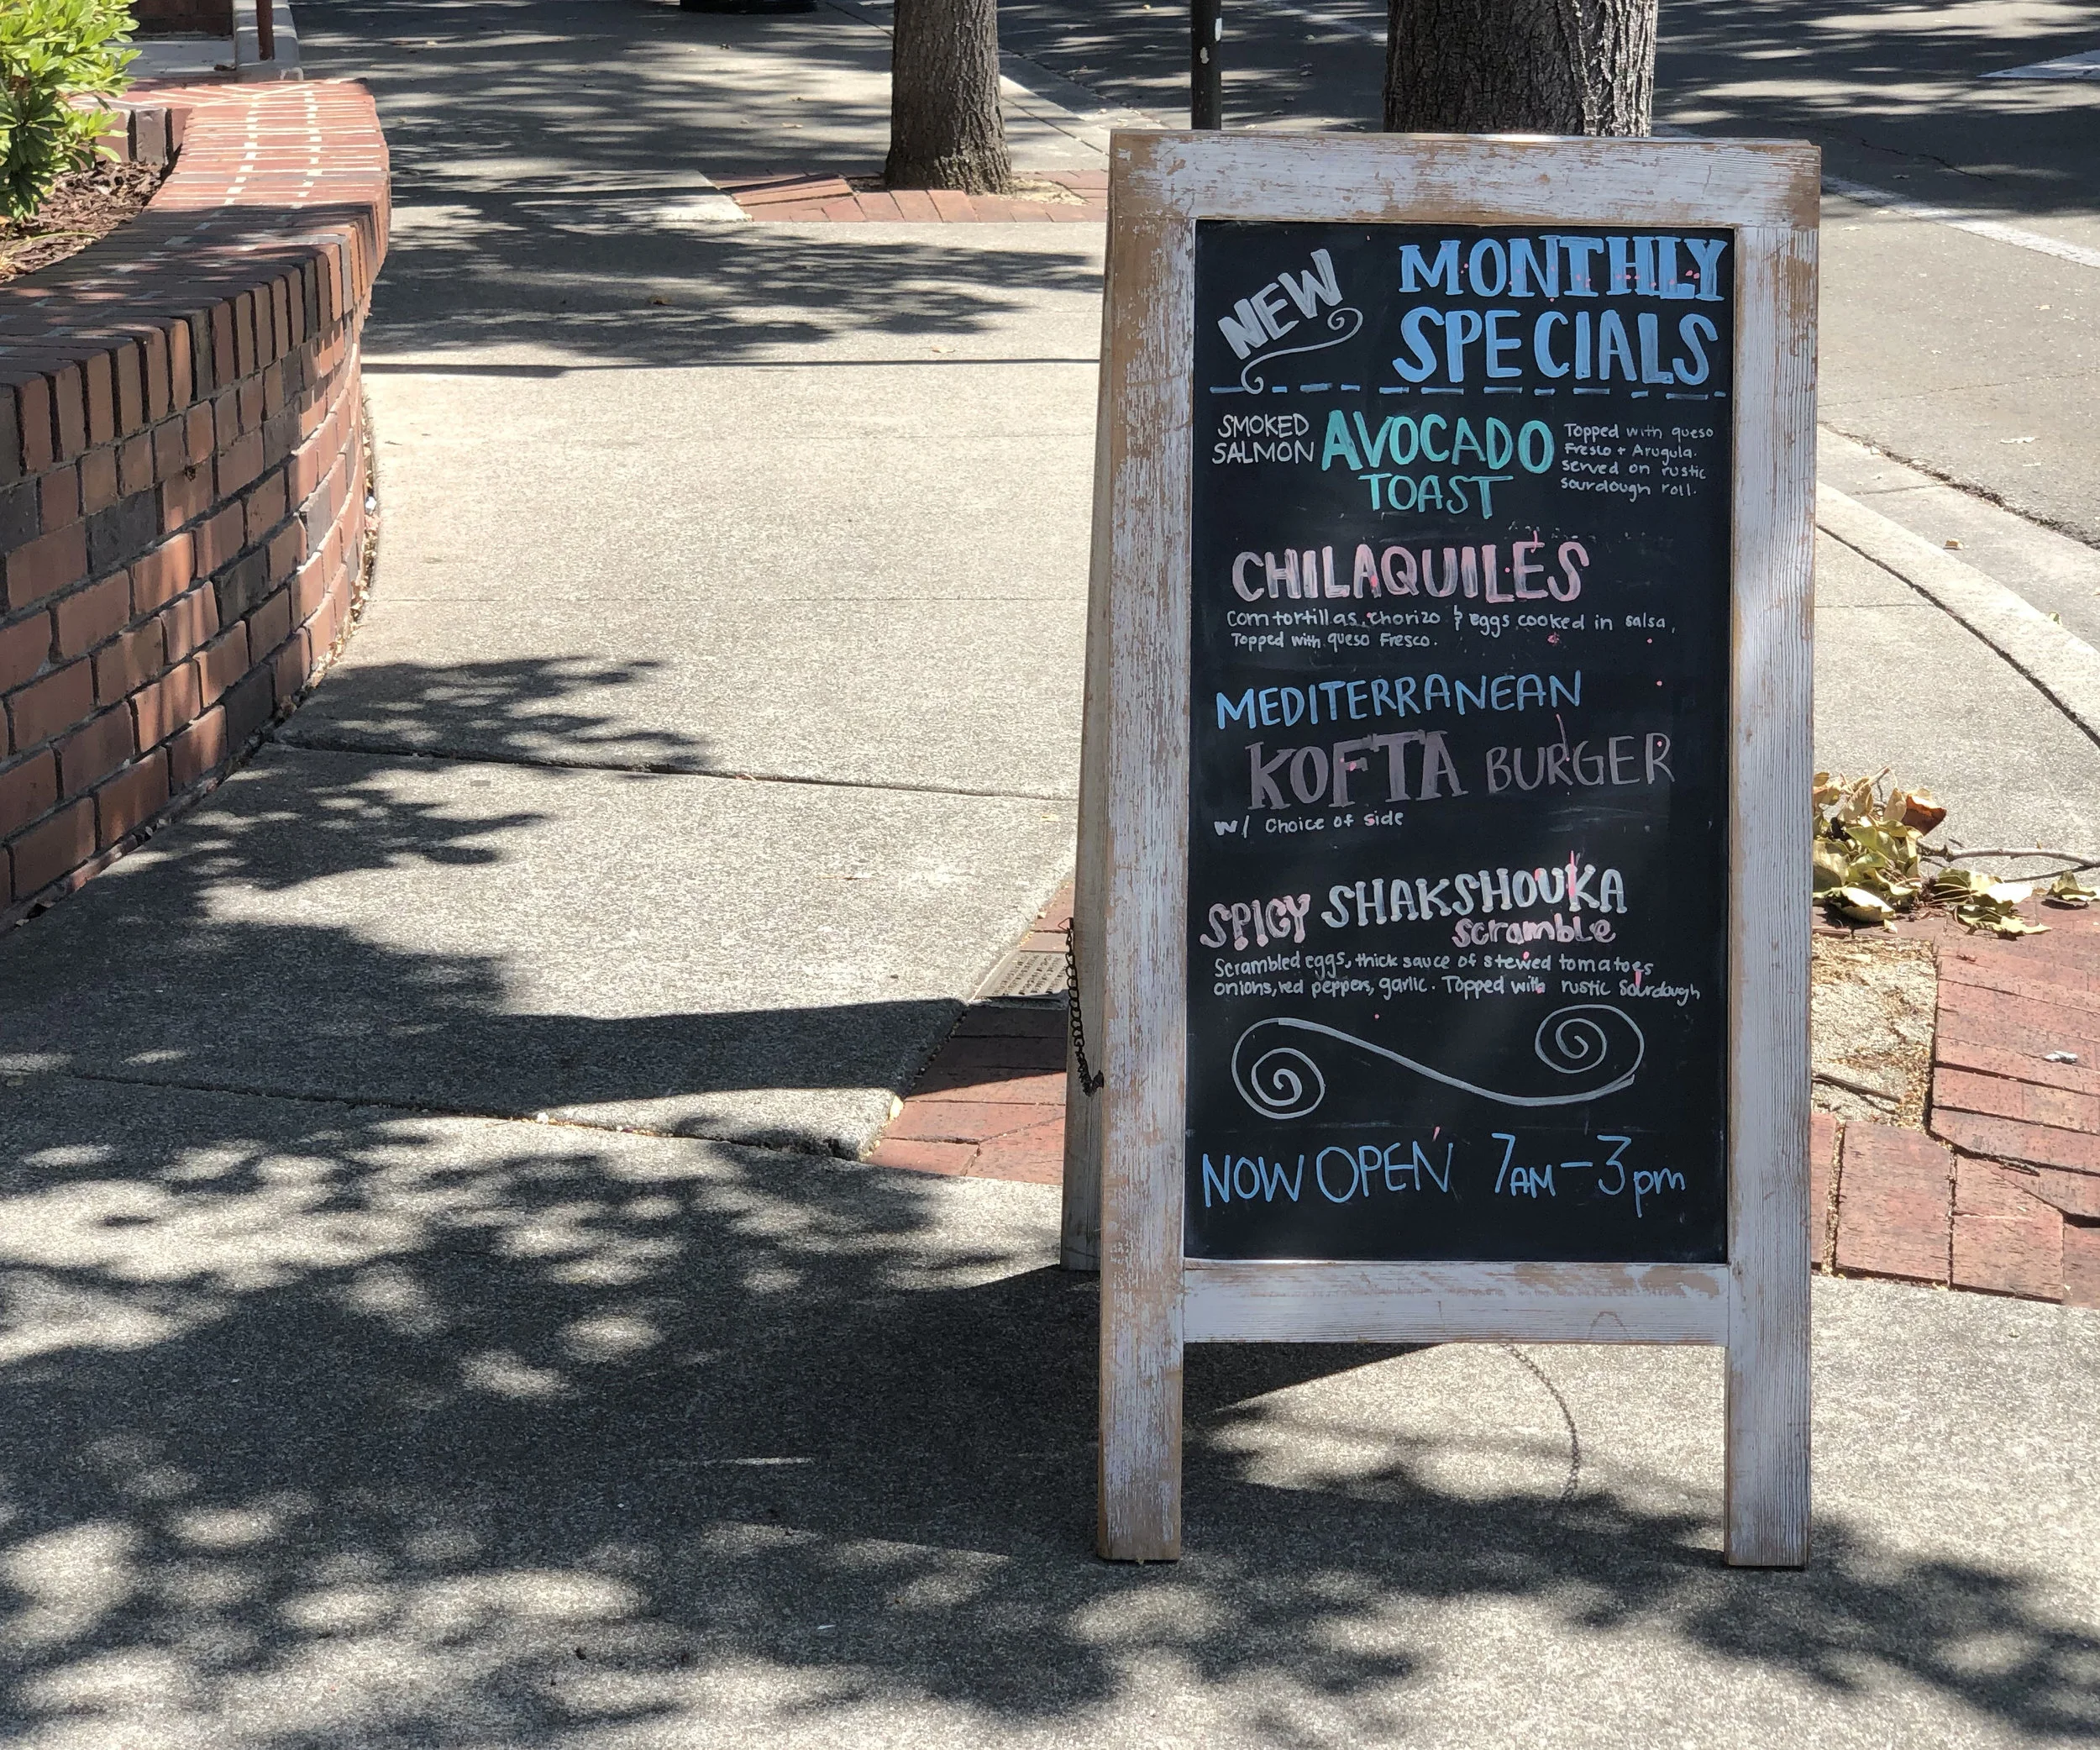 NEW
MONTHLY
SPECIALS
SMOKED
SALMON
AVOCADO
TOAST
Topped with queso
Fresco + Arugula.
served on rustic
sourdough roll.
CHILAQUILES
Corn tortillas, chorizo & eggs cooked in salsa,
Topped with queso Fresco.
MEDITERRANEAN
KOFTA BURGER
w/ Choice of side
SPICY SHAKSHOUKA
scramble
Scrambled eggs, thick sauce of stewed tomatoes
onions, red peppers, garlic. Topped with rustic Sourdough
NOW OPEN 7AM-3pm